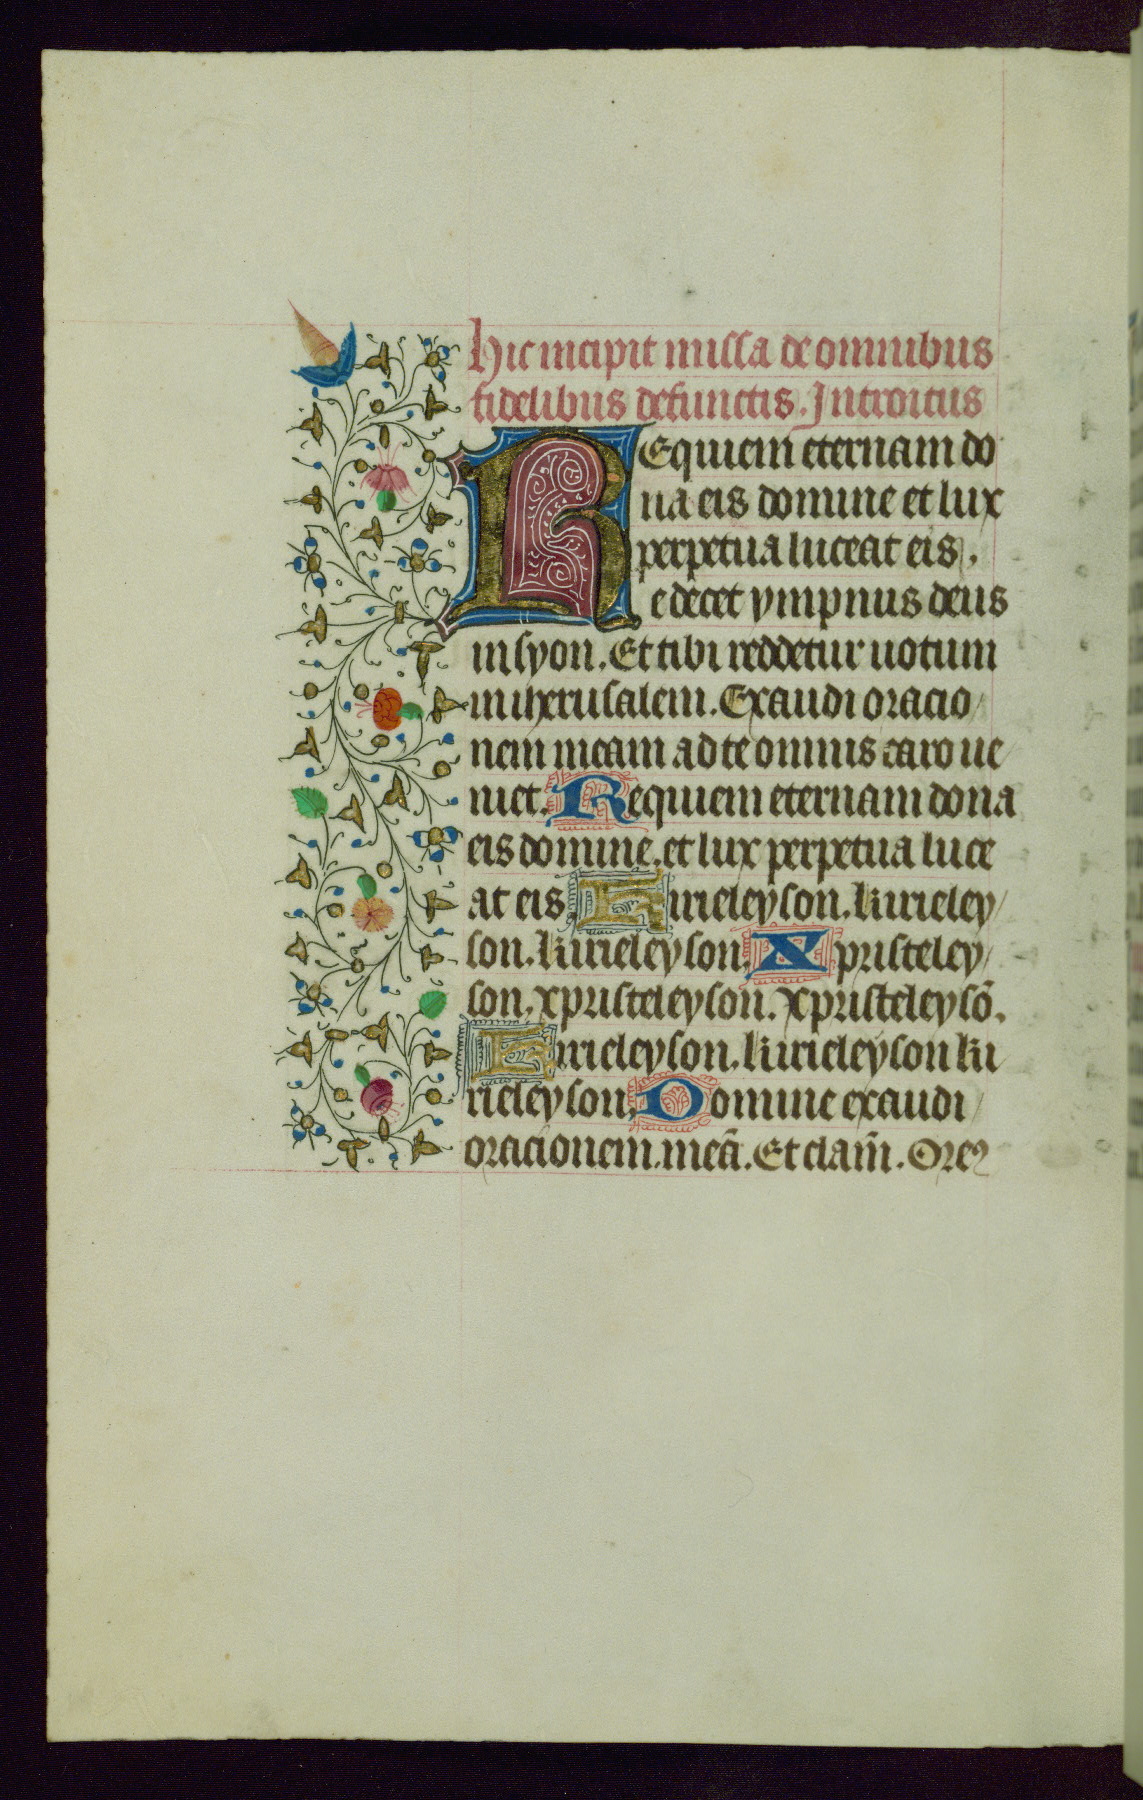 Hic incipit missa de omnibus
fidelibus defunctis. Introitus
REquiem eternam do
na eis domine et lux
perpetua luceat eis.
e decet ympnus deus
in syon. Et tibi reddetur uotum
in iherusalem. Exaudi oracio
nem meam ad te omnis caro ue
niet. Requiem eternam dona
eis domine. et lux perpetua luce
at eis. Kirieleyson. kirieley
son. kirieleyson. Xpristeley
son. xpristeleyson. Xpristeleysō.
Kirieleyson. kirieleyson ki
rieleyson. Domine exaudi
oracionem. meā. Et clam̄. Orem9